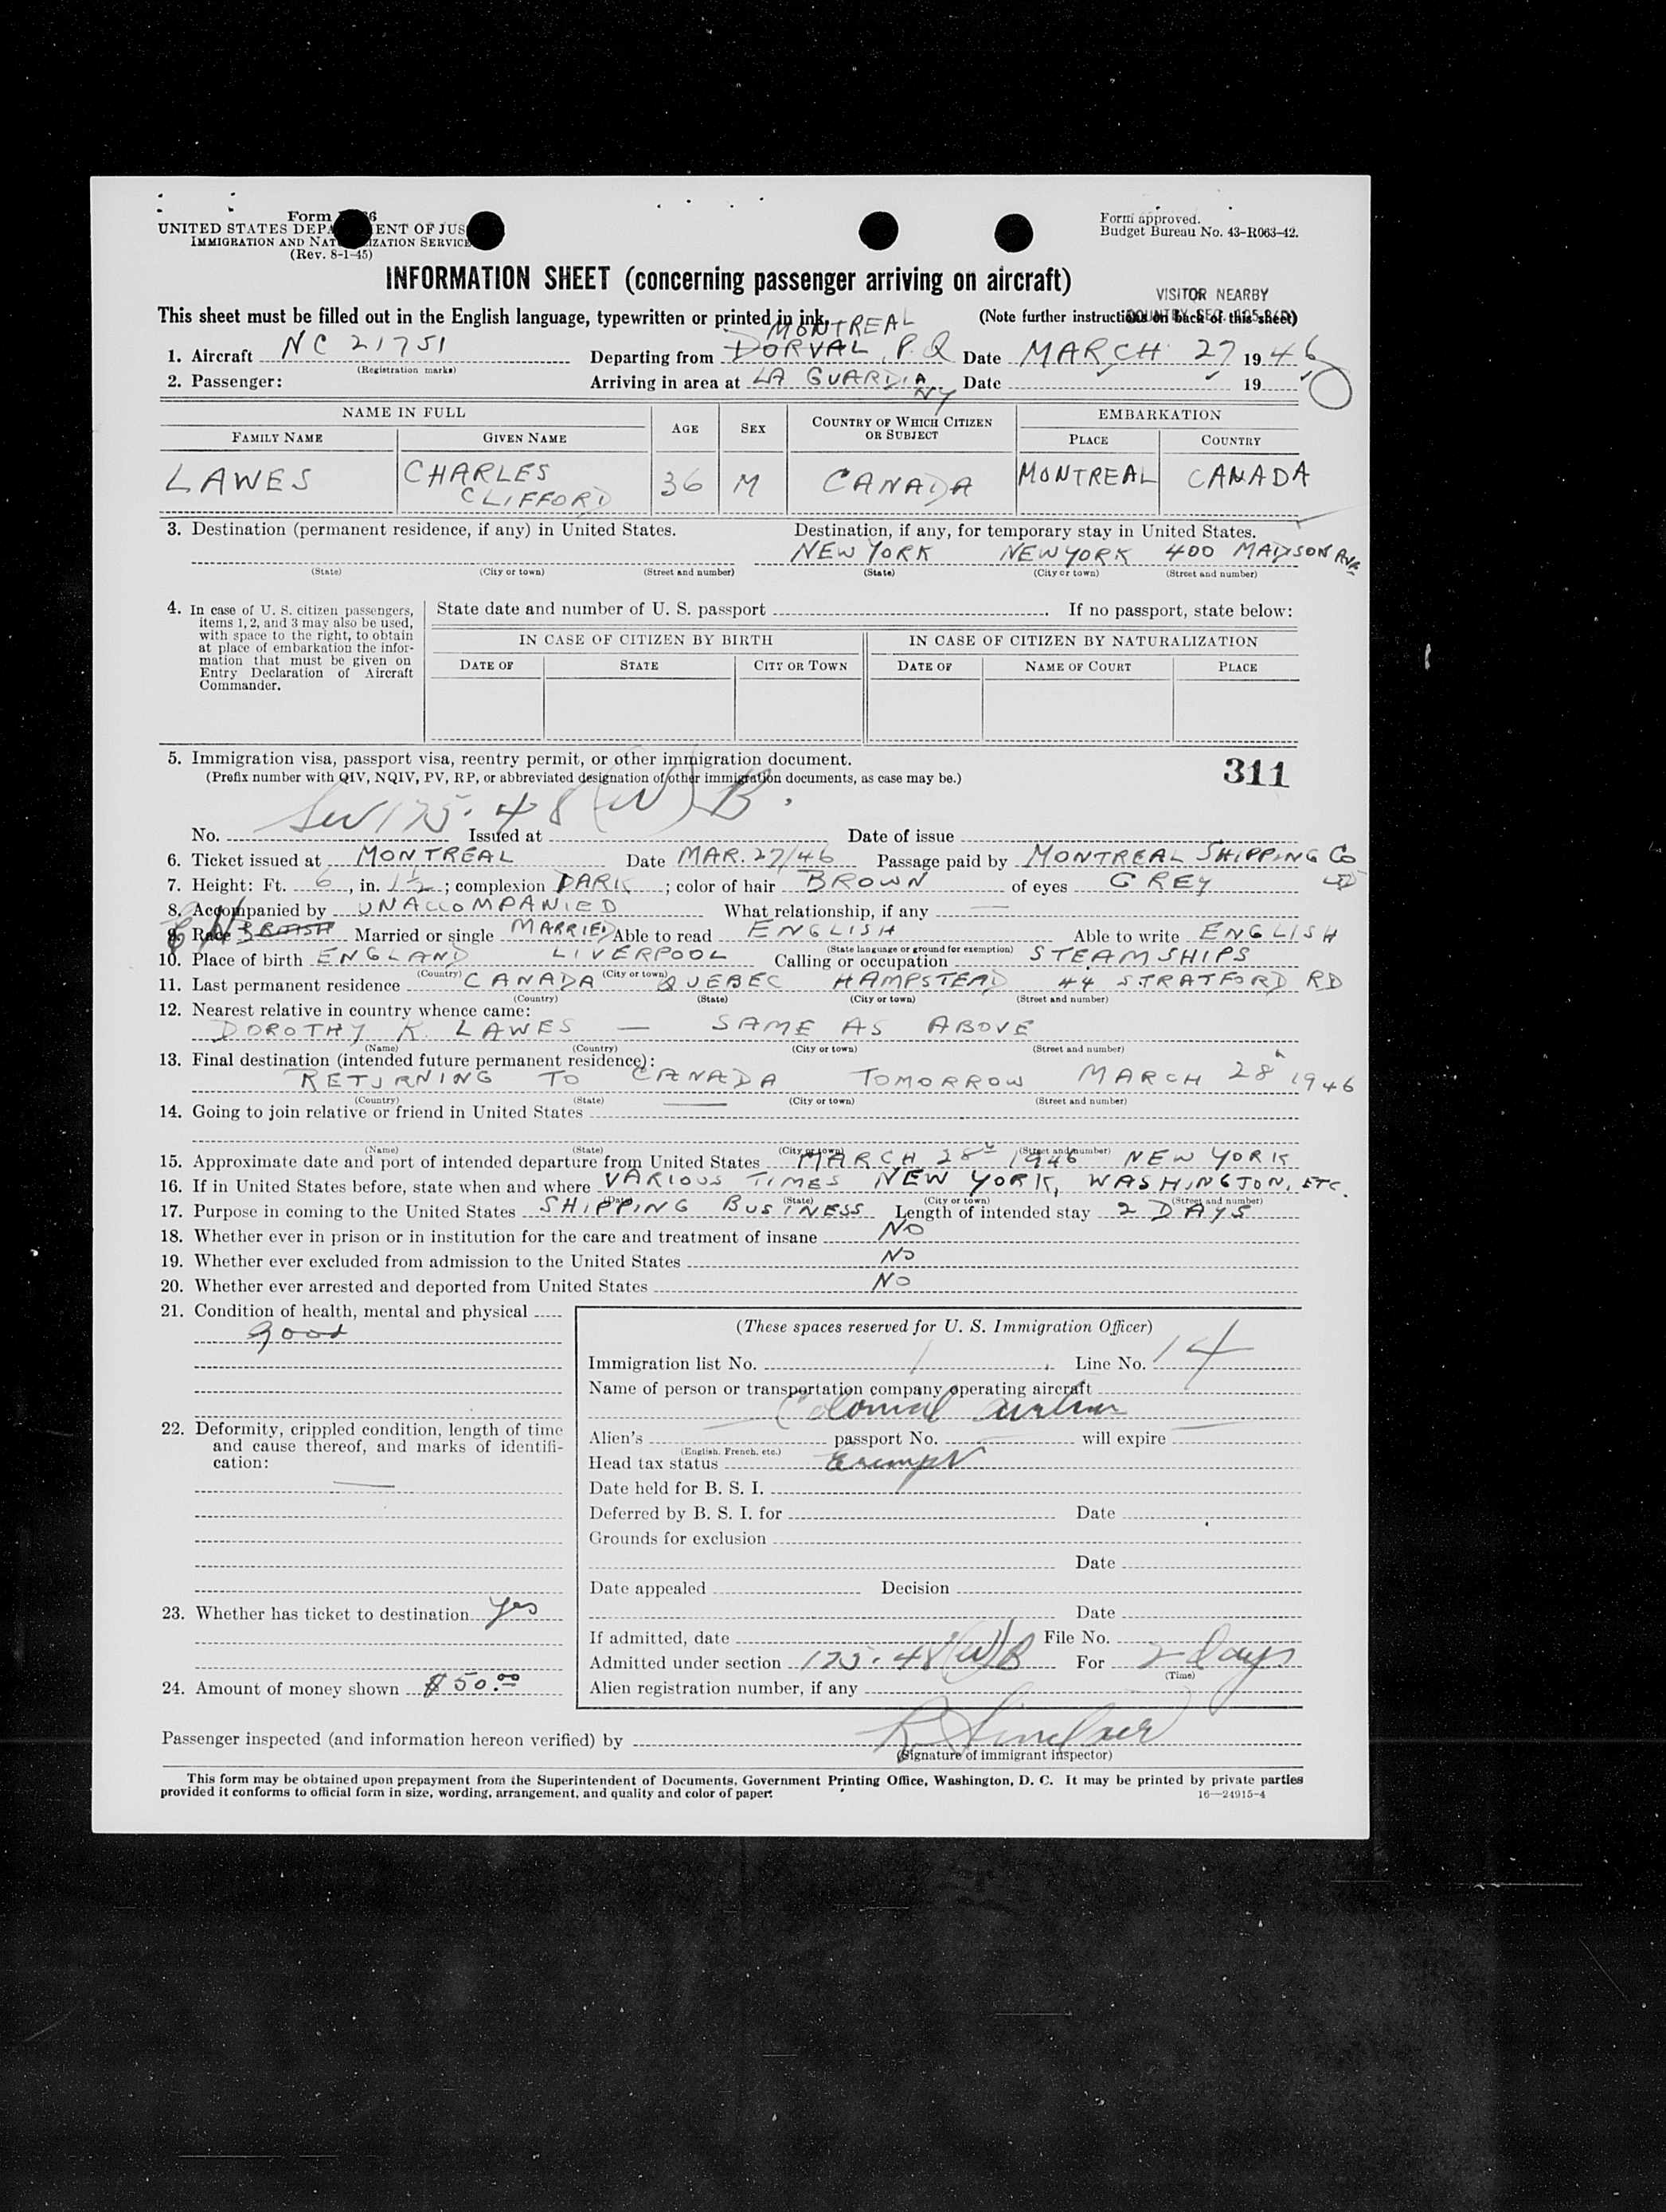 Form
UNITED STATES DEPA ENT OF JUS
IMMIGRATION AND NAT IZATION SERVICE
(Rev. 8-1-45)
Form approved.
Budget Bureau No. 43-R063-42.
INFORMATION SHEET (concerning passenger arriving on aircraft)
VISITOR NEARBY
This sheet must be filled out in the English language, typewritten or printed in ink. (Note further instructions on back of this sheet)
MONTREAL
1. Aircraft NC 21751 Departing from DORVAL, P.Q Date MARCH 27 1946
(Registration marks)
2. Passenger: Arriving in area at LA GUARDIA NY Date 19
NAME IN FULL AGE SEX COUNTRY OF WHICH CITIZEN OR SUBJECT EMBARKATION
FAMILY NAME GIVEN NAME PLACE COUNTRY
LAWES CHARLES CLIFFORD 36 M CANADA MONTREAL CANADA
3. Destination (permanent residence, if any) in United States. Destination, if any, for temporary stay in United States.
NEW YORK NEW YORK 400 MADISON AVE
(State) (City or town) (Street and number) (State) (City or town) (Street and number)
4. In case of U. S. citizen passengers, items 1, 2, and 3 may also be used, with space to the right, to obtain at place of embarkation the information that must be given on Entry Declaration of Aircraft Commander.
State date and number of U. S. passport . If no passport, state below:
IN CASE OF CITIZEN BY BIRTH IN CASE OF CITIZEN BY NATURALIZATION
DATE OF STATE CITY OR TOWN DATE OF NAME OF COURT PLACE
5. Immigration visa, passport visa, reentry permit, or other immigration document.
(Prefix number with QIV, NQIV, PV, RP, or abbreviated designation of other immigration documents, as case may be.)
311
175.48(W)B.
No. Issued at Date of issue
6. Ticket issued at MONTREAL Date MAR. 27/46 Passage paid by MONTREAL SHIPPING Co LTD
7. Height: Ft. 6, in. 1½; complexion DARK; color of hair BROWN of eyes GREY
8. Accompanied by UNACCOMPANIED What relationship, if any —
9. Race BRITISH Married or single MARRIED Able to read ENGLISH Able to write ENGLISH
(State language or ground for exemption)
10. Place of birth ENGLAND LIVERPOOL Calling or occupation STEAMSHIPS
(Country) (City or town)
11. Last permanent residence CANADA QUEBEC HAMPSTEAD 44 STRATFORD RD
(Country) (State) (City or town) (Street and number)
12. Nearest relative in country whence came:
DOROTHY K. LAWES — SAME AS ABOVE
(Name) (Country) (City or town) (Street and number)
13. Final destination (intended future permanent residence):
RETURNING TO CANADA TOMORROW MARCH 28 1946
(Country) (State) (City or town) (Street and number)
14. Going to join relative or friend in United States —
(Name) (State) (City or town) (Street and number)
15. Approximate date and port of intended departure from United States MARCH 28 1946 NEW YORK
16. If in United States before, state when and where VARIOUS TIMES NEW YORK, WASHINGTON, ETC.
(Date) (State) (City or town) (Street and number)
17. Purpose in coming to the United States SHIPPING BUSINESS Length of intended stay 2 DAYS
18. Whether ever in prison or in institution for the care and treatment of insane NO
19. Whether ever excluded from admission to the United States NO
20. Whether ever arrested and deported from United States NO
21. Condition of health, mental and physical
good
22. Deformity, crippled condition, length of time and cause thereof, and marks of identification:
—
23. Whether has ticket to destination Yes
24. Amount of money shown $50.00
(These spaces reserved for U. S. Immigration Officer)
Immigration list No. 1 Line No. 14
Name of person or transportation company operating aircraft
Colonial Airlines
Alien's — passport No. — will expire —
(English, French, etc.)
Head tax status Exempt
Date held for B. S. I.
Deferred by B. S. I. for Date
Grounds for exclusion
Date
Date appealed Decision
Date
If admitted, date File No.
Admitted under section 175.48(W)B For 2 days
(Time)
Alien registration number, if any
Passenger inspected (and information hereon verified) by R. Sinclair
(Signature of immigrant inspector)
This form may be obtained upon prepayment from the Superintendent of Documents, Government Printing Office, Washington, D. C. It may be printed by private parties
provided it conforms to official form in size, wording, arrangement, and quality and color of paper.
16—24915-4